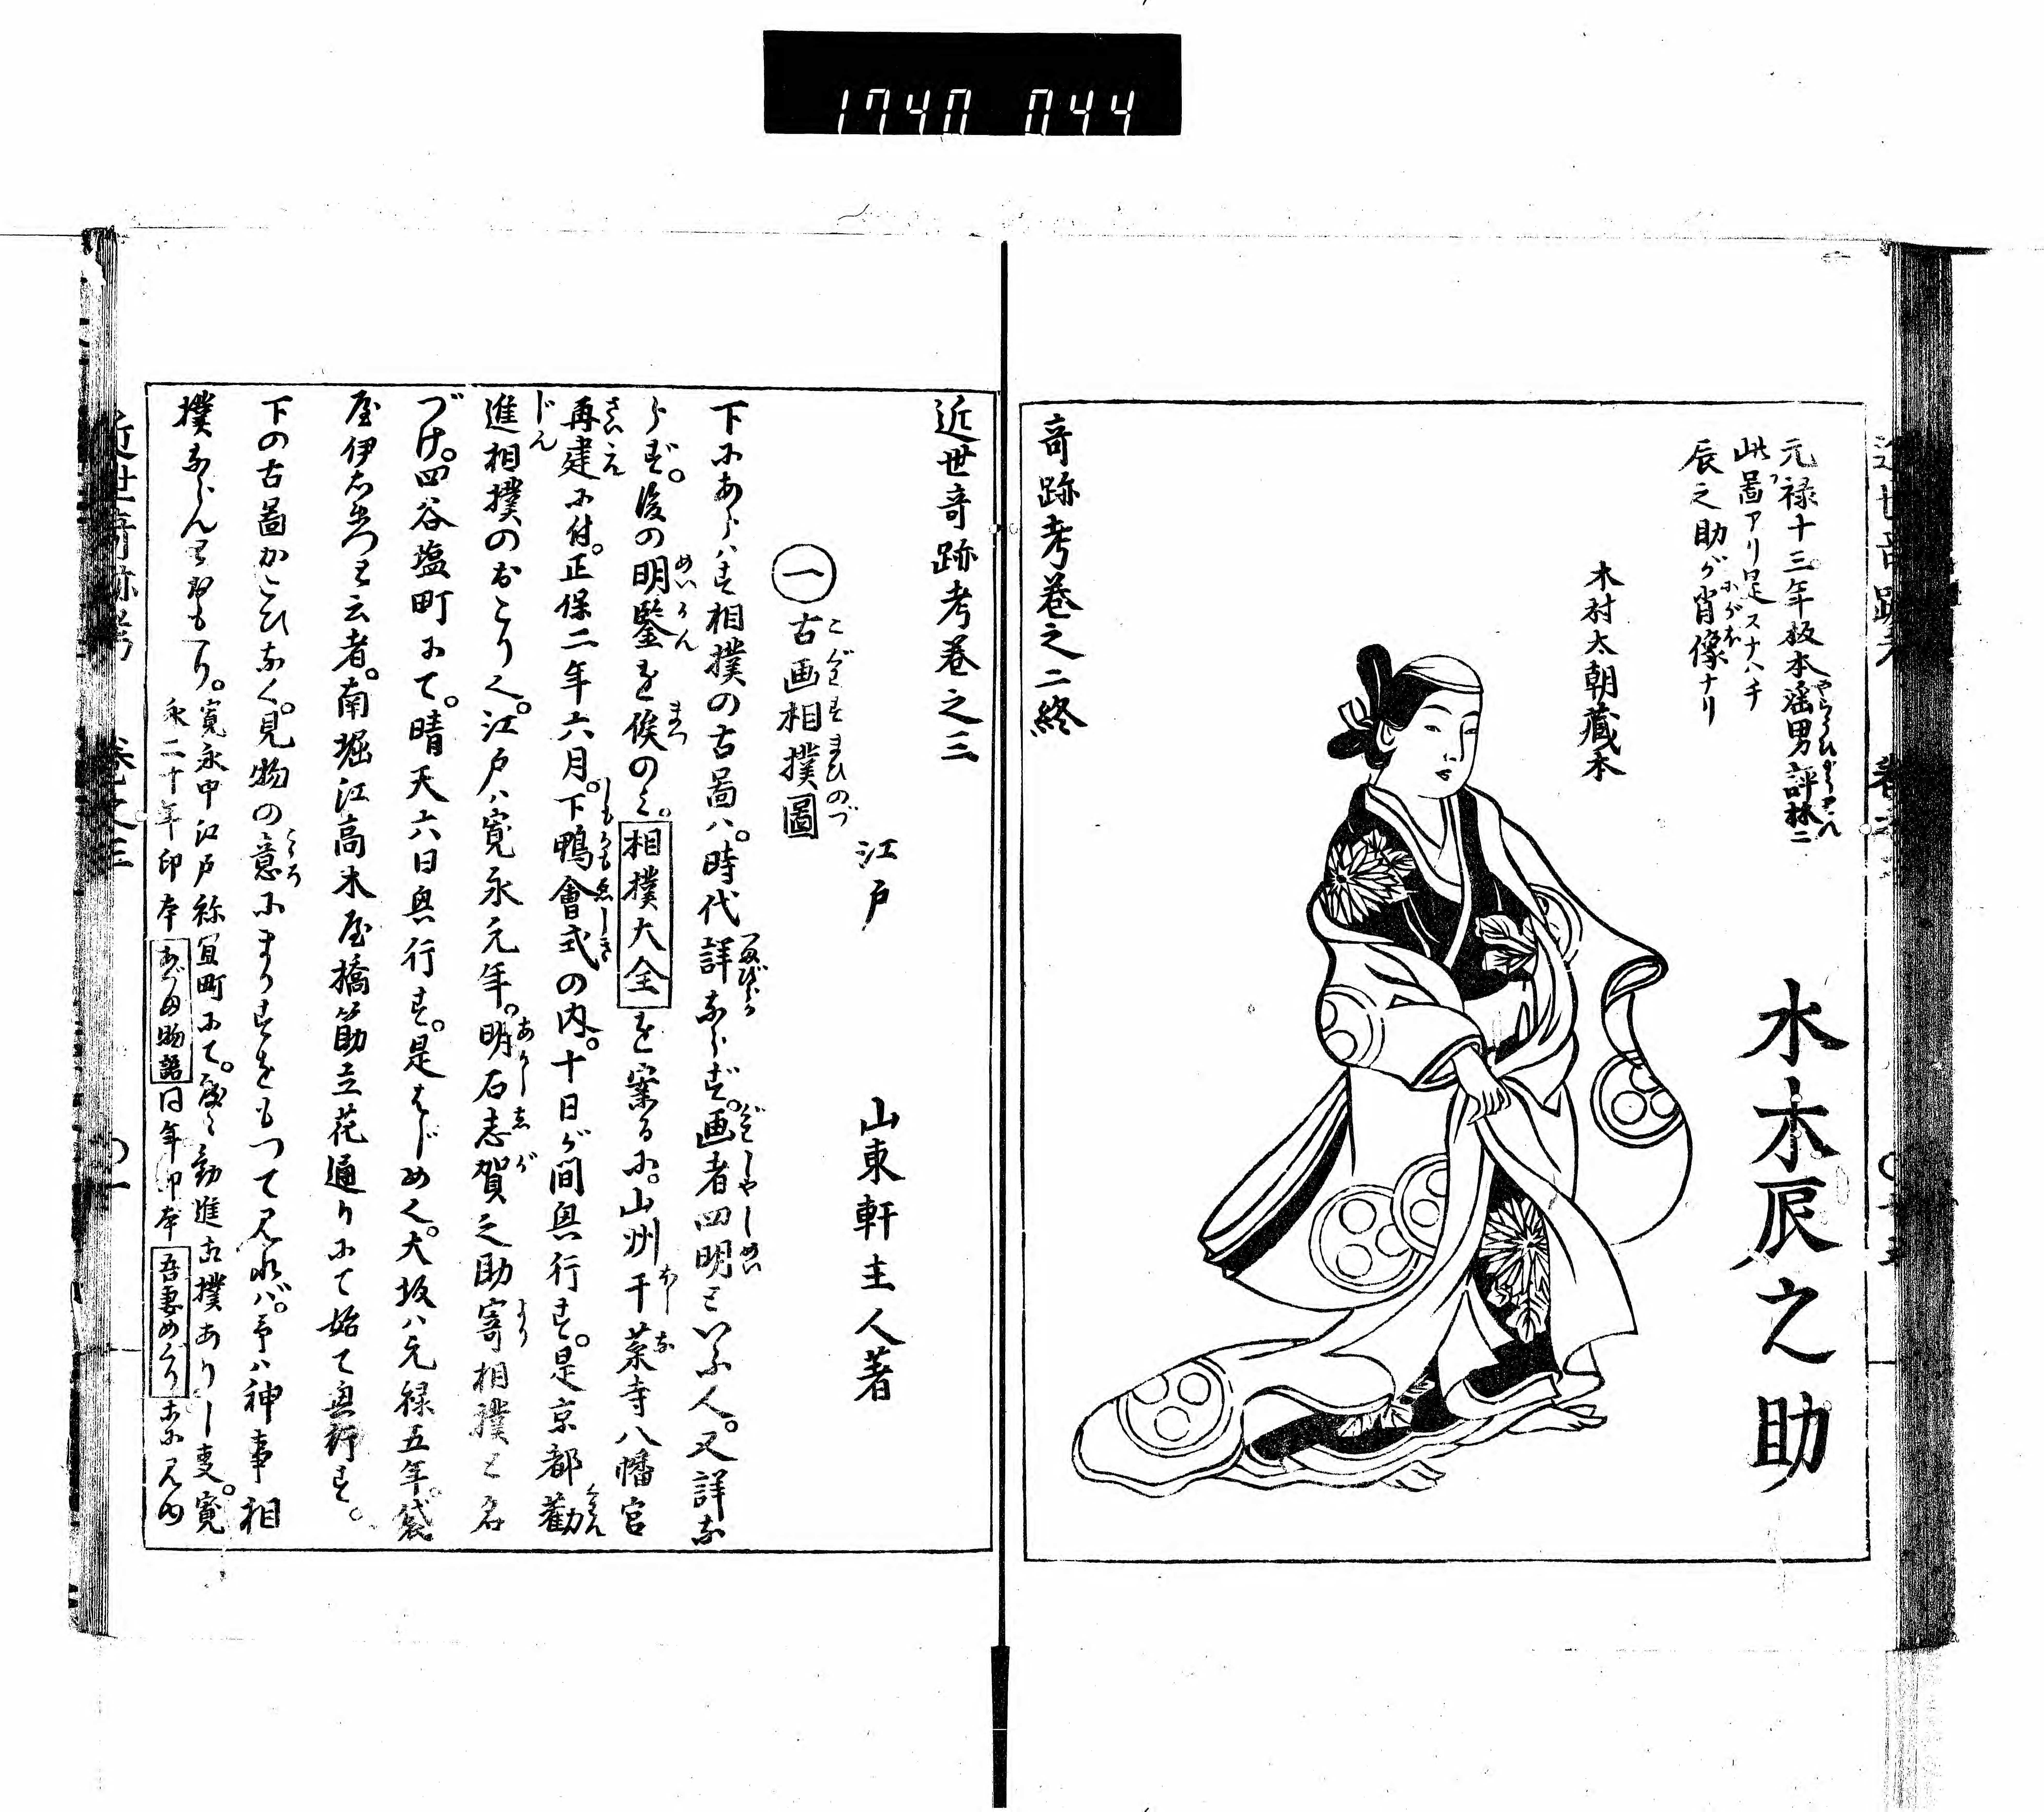 1740 044
元禄十三年板本謡男評林ニ
此畐アリ是スナハチ
辰之助ガ肖像ナリ
木村太朝蔵本
水木辰之助
奇跡考巻之二終
近世奇跡考巻之三
江戸 山東軒主人著
一 古画相撲圖
下にあらハす相撲の古畐ハ。時代詳ならず。画者四明といふ人。又詳な
らず。後の明鑒を俟のミ。相撲大全を案るに。山州干菜寺八幡宮
再建に付。正保二年六月。下鴨會式の内。十日が間興行す。是京都勸
進相撲のおこり也。江戸ハ寛永元年。明石志賀之助寄相撲と名
づけ。四谷塩町にて。晴天六日興行す。是はじめ也。大坂ハ元禄五年。袋
屋伊右衛門と云者。南堀江高木屋橋筋立花通りにて始て興行す。
下の古畐かこひなく。見物の意にまかすをもつて見れバ。予ハ神事相
撲ならんと思へり。寛永中江戸祢宜町にて。度々勧進相撲ありし事。寛
永二十年印本あづま物語同年印本吾妻めぐり等に見ゆ
近世奇跡考 巻之三 〇一